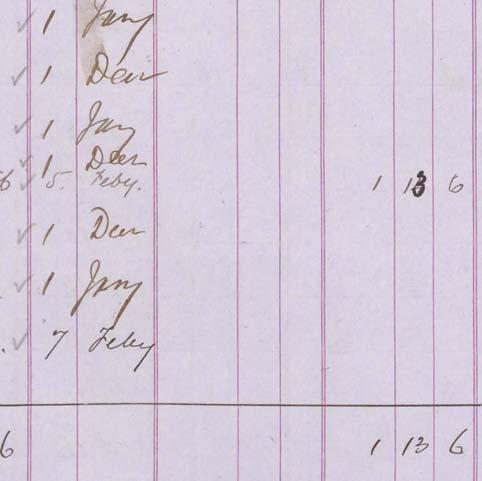 ✓ 1 Jany
✓ 1 Decr
✓ 1 Jany
✓ 1 Decr
6 ✓ 5. Feby. 1 13 6
✓ 1 Decr
✓ 1 Jany
✓ 7 Feby
6 1 13 6